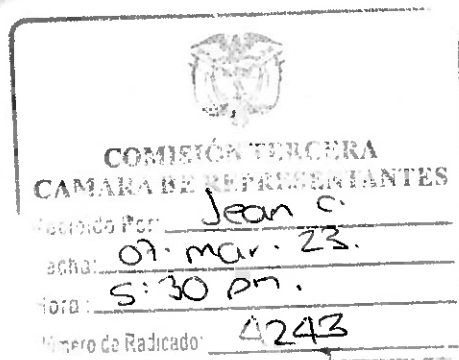 COMISIÓN TERCERA
CAMARA DE REPRESENTANTES
Recibido Por: Jean C.
Fecha: 07. mar. 23.
Hora: 5:30 pm.
Número de Radicado: 4243